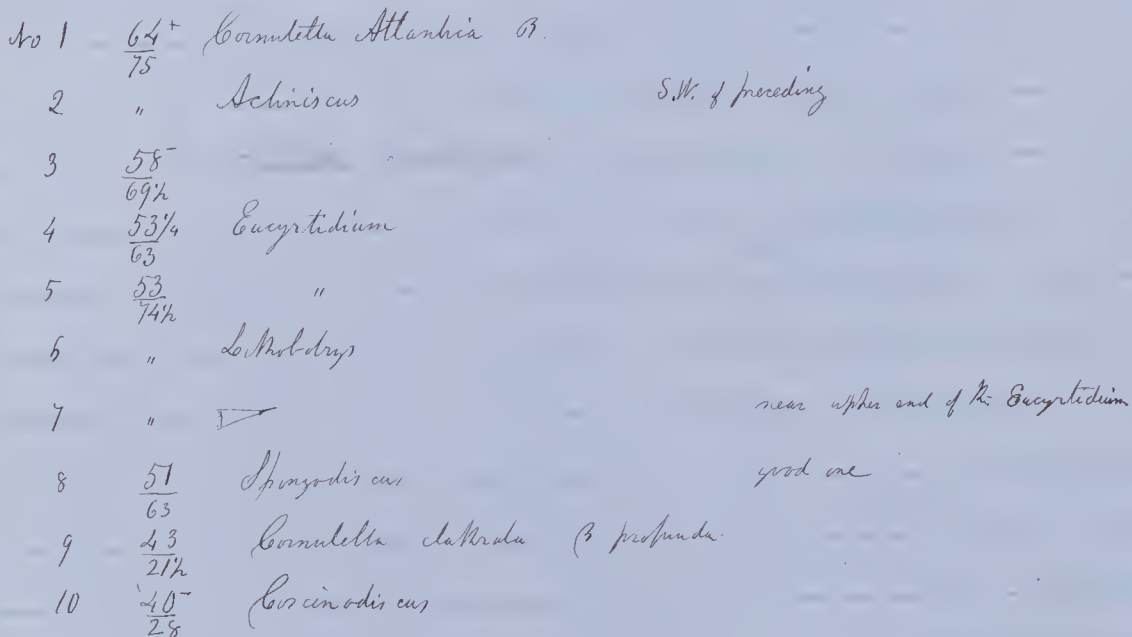 No 1 64+/75 Cornutella Atlantica B.
2 " Actiniscus S.W. of preceding
3 58-/69½
4 53¼/63 Eucyrtidium
5 53/74½ "
6 " Lithobotrys
7 " near upper end of the Eucyrtidium
8 51/63 Spongodiscus good one
9 43/21½ Cornutella clathrata β profunda.
10 40-/28 Coscinodiscus